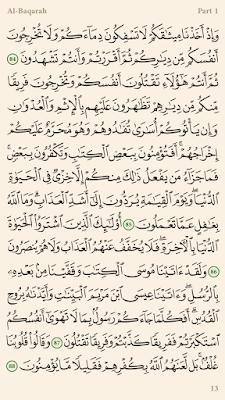 Al-Baqarah Part 1
وَإِذْ أَخَذْنَا مِيثَٰقَكُمْ لَا تَسْفِكُونَ دِمَآءَكُمْ وَلَا تُخْرِجُونَ
أَنفُسَكُم مِّن دِيَٰرِكُمْ ثُمَّ أَقْرَرْتُمْ وَأَنتُمْ تَشْهَدُونَ 84
ثُمَّ أَنتُمْ هَٰٓؤُلَآءِ تَقْتُلُونَ أَنفُسَكُمْ وَتُخْرِجُونَ فَرِيقًا
مِّنكُم مِّن دِيَٰرِهِمْ تَظَٰهَرُونَ عَلَيْهِم بِٱلْإِثْمِ وَٱلْعُدْوَٰنِ
وَإِن يَأْتُوكُمْ أُسَٰرَىٰ تُفَٰدُوهُمْ وَهُوَ مُحَرَّمٌ عَلَيْكُمْ
إِخْرَاجُهُمْ ۚ أَفَتُؤْمِنُونَ بِبَعْضِ ٱلْكِتَٰبِ وَتَكْفُرُونَ بِبَعْضٍ ۚ
فَمَا جَزَآءُ مَن يَفْعَلُ ذَٰلِكَ مِنكُمْ إِلَّا خِزْىٌ فِى ٱلْحَيَوٰةِ
ٱلدُّنْيَا ۖ وَيَوْمَ ٱلْقِيَٰمَةِ يُرَدُّونَ إِلَىٰٓ أَشَدِّ ٱلْعَذَابِ ۗ وَمَا ٱللَّهُ
بِغَٰفِلٍ عَمَّا تَعْمَلُونَ 85 أُو۟لَٰٓئِكَ ٱلَّذِينَ ٱشْتَرَوُا۟ ٱلْحَيَوٰةَ
ٱلدُّنْيَا بِٱلْءَاخِرَةِ ۖ فَلَا يُخَفَّفُ عَنْهُمُ ٱلْعَذَابُ وَلَا هُمْ يُنصَرُونَ
86 وَلَقَدْ ءَاتَيْنَا مُوسَى ٱلْكِتَٰبَ وَقَفَّيْنَا مِنۢ بَعْدِهِۦ
بِٱلرُّسُلِ ۖ وَءَاتَيْنَا عِيسَى ٱبْنَ مَرْيَمَ ٱلْبَيِّنَٰتِ وَأَيَّدْنَٰهُ بِرُوحِ
ٱلْقُدُسِ ۗ أَفَكُلَّمَا جَآءَكُمْ رَسُولٌۢ بِمَا لَا تَهْوَىٰٓ أَنفُسُكُمُ
ٱسْتَكْبَرْتُمْ فَفَرِيقًا كَذَّبْتُمْ وَفَرِيقًا تَقْتُلُونَ 87 وَقَالُوا۟ قُلُوبُنَا
غُلْفٌۢ ۚ بَل لَّعَنَهُمُ ٱللَّهُ بِكُفْرِهِمْ فَقَلِيلًا مَّا يُؤْمِنُونَ 88
13